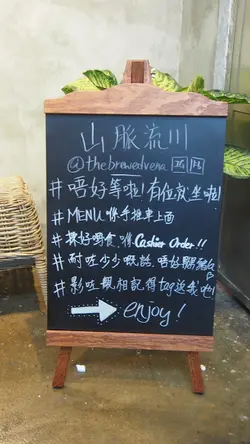 山脈流川
@thebrewedvena IG FB
#唔好等啦!有位就坐啦!
#MENU喺手推車上面
#揀好嘢食,喺Cashier Order!!
#耐咗少少嘅話,唔好鬧我
#影咗靚相記得tag返我哋!
enjoy!